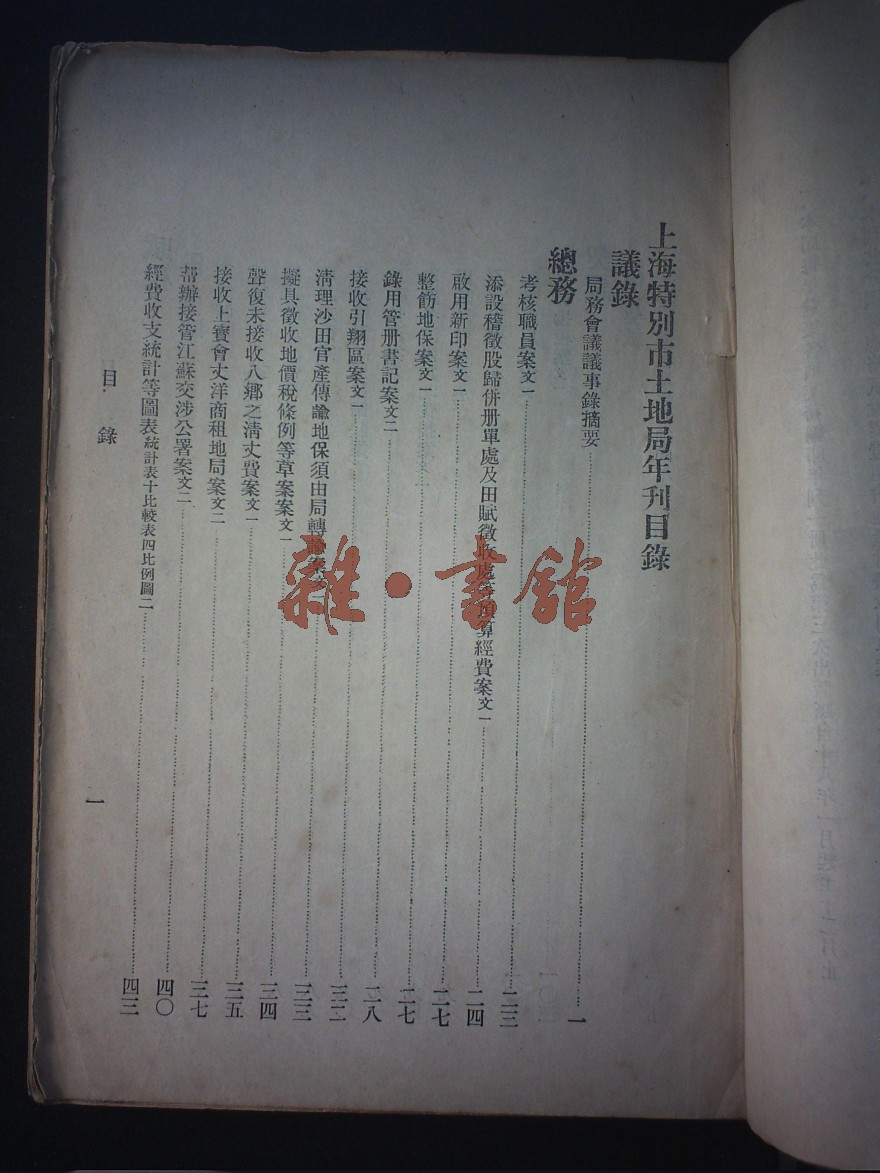 上海特別市土地局年刊目錄
議錄
局務會議議事錄摘要 一
總務
考核職員案文一 二三
添設稽徵股歸併册單處及田賦徵收處等預算經費案文一 二四
啟用新印案文一 二七
整飭地保案文一 二七
錄用管册書記案文二 二八
接收引翔區案文一 三二
清理沙田官產傳諭地保須由局轉諭案文 三三
擬具徵收地價稅條例等草案案文一 三四
聲復未接收八鄉之清丈費案文一 三五
接收上寶會丈洋商租地局案文二 三七
帮辦接管江蘇交涉公署案文二 四〇
經費收支統計等圖表統計表十比較表四比例圖二 四三
目錄
一
雜·書館